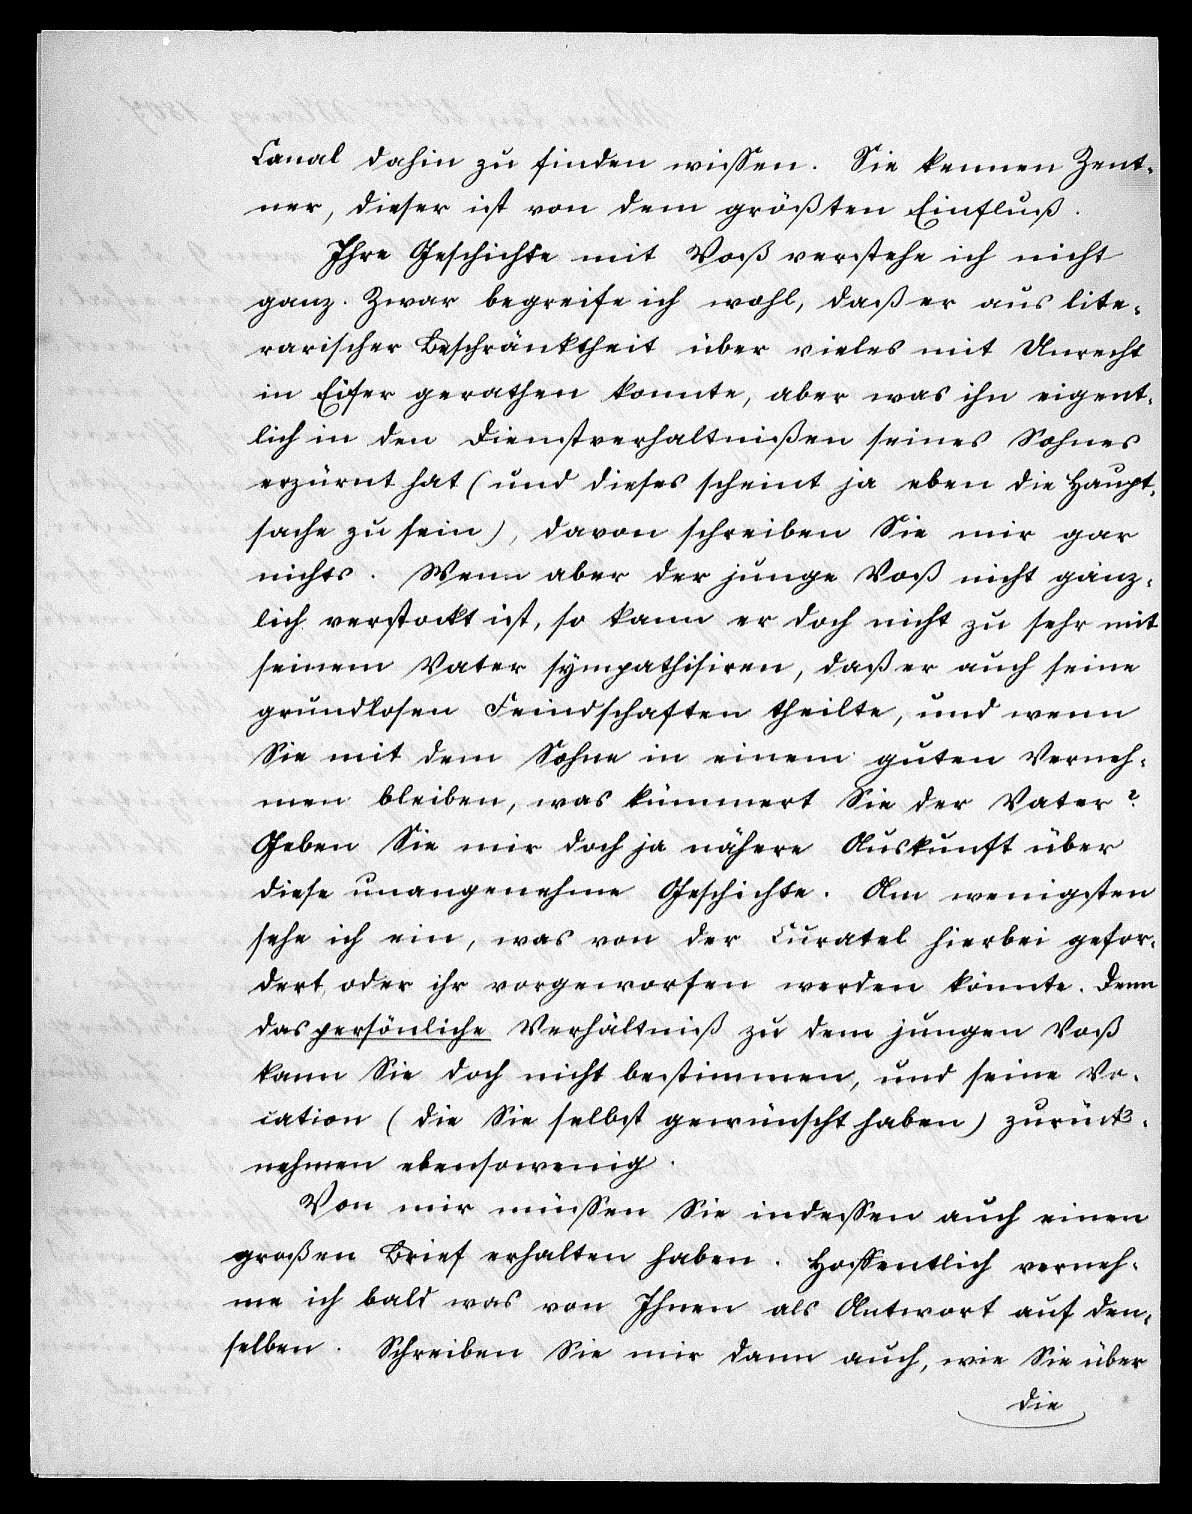 Canal dahin zu finden wissen. Sie kennen Zent-
ner, dieser ist von dem größten Einfluß.
Ihre Geschichte mit Voß verstehe ich nicht
ganz. Zwar begreife ich wohl, daß er aus lite-
rarischer Beschränktheit über vieles mit Unrecht
in Eifer gerathen konnte, aber was ihn eigent-
lich in den Dienstverhaltnißen seines Sohnes
erzürnt hat (und dieses scheint ja eben die Haupt-
sache zu sein), davon schreiben Sie mir gar
nichts. Wenn aber der junge Voß nicht gänz-
lich verstockt ist, so kann er doch nicht zu sehr mit
seinem Vater sympathisiren, daß er auch seine
grundlosen Feindschaften theilte, und wenn
Sie mit dem Sohne in einem guten Verneh-
men bleiben, was kümmert Sie der Vater?
Geben Sie mir doch ja nähere Auskunft über
diese unangenehme Geschichte. Am wenigsten
sehe ich ein, was von der Curatel hierbei gefor-
dert, oder ihr vorgeworfen werden könnte. Denn
das persönliche Verhältniß zu dem jungen Voß
kann Sie doch nicht bestimmen, und seine Vo-
cation (die Sie selbst gewünscht haben) zurück-
nehmen ebensowenig.
Von mir müssen Sie indessen auch einen
großen Brief erhalten haben. Hoffentlich verneh-
me ich bald was von Ihnen als Antwort auf den-
selben. Schreiben Sie mir dann auch, wie Sie über
die